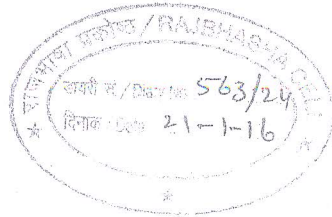 राजभाषा प्रकोष्ठ / RAJBHASHA CELL
डायरी सं./Diary No. 563/24
दिनांक/Date 21-1-16